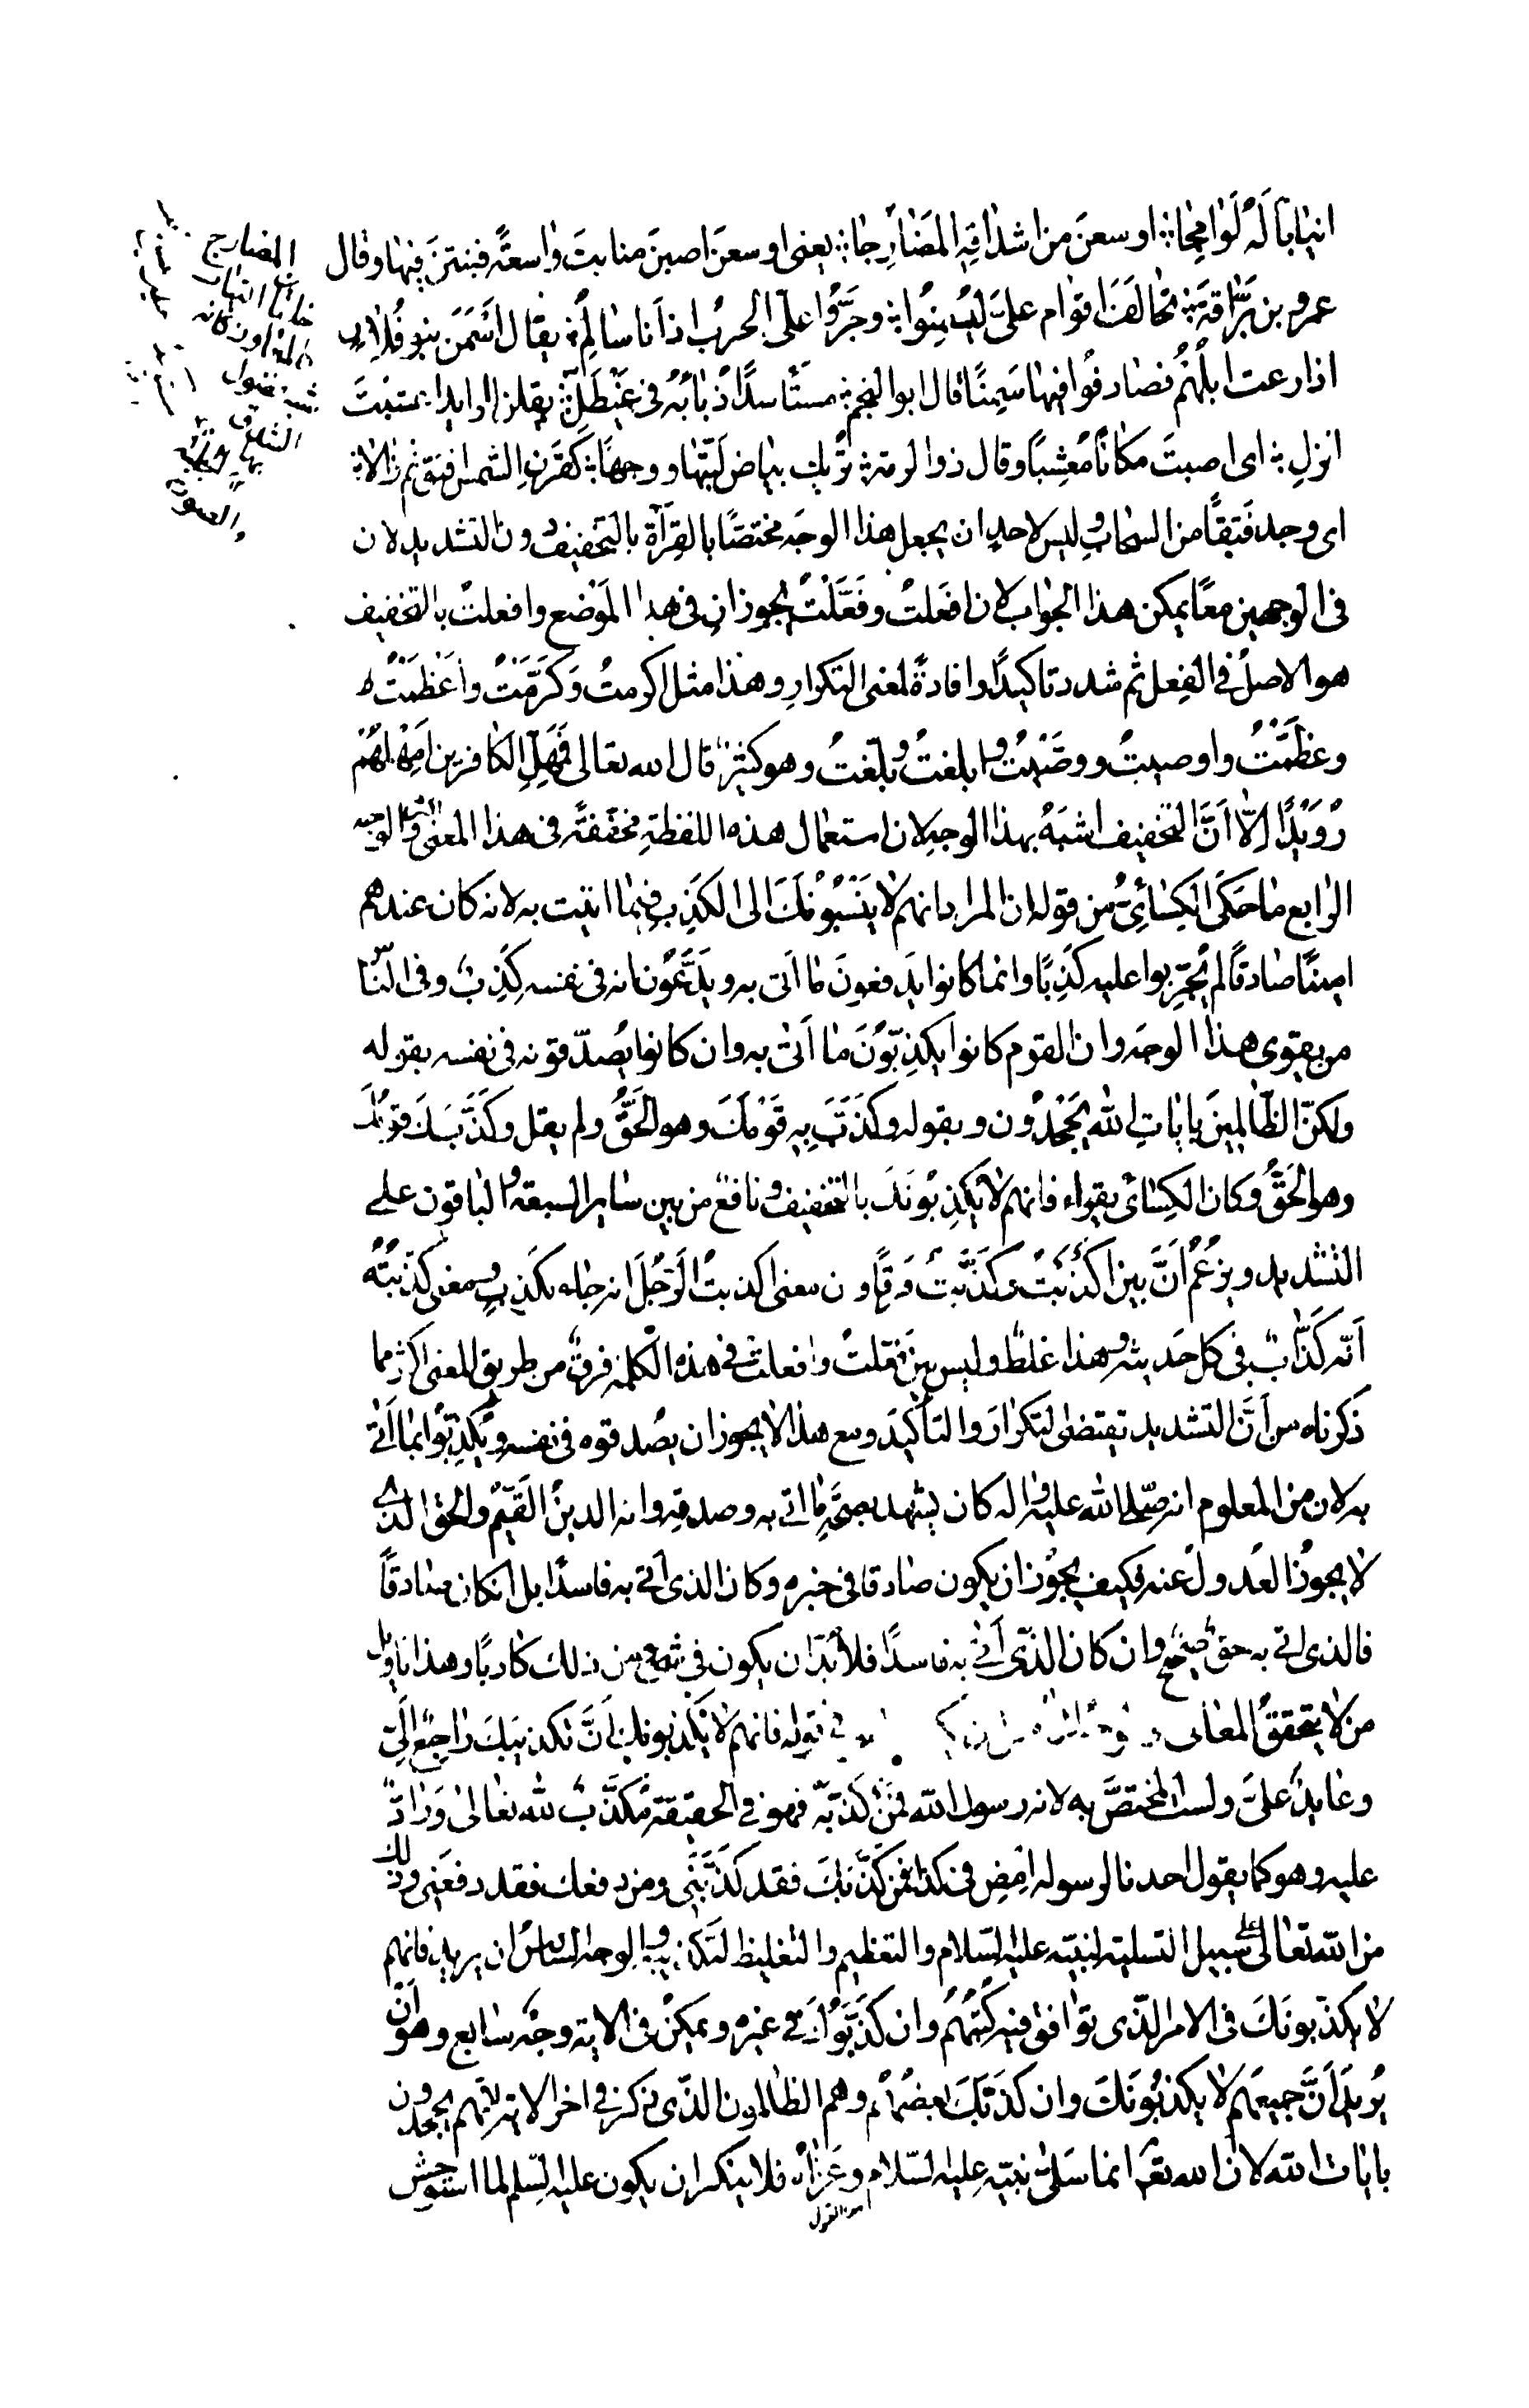 انيابا له لوامجا ؞ اوسعن من اشداقه المضارجا ؞ يعنى اوسعن اصبن منابت واسعة فنبتن فيها وقال
عمرو بن برّاقة ؞ تحالف اقوام علىّ ليسمنوا ؞ وجرّوا علىّ الحرب اذ انا سالم ؞ يقال اسمن بنو فلان
اذا رعت ابلهم فصادفوا فيها سمينًا قال ابو النجم ؞ مستأسدًا ذبابه فى غيطل ؞ يقلن للرايد اعشبت
انزل ؞ اى اصبت مكانًا معشبًا وقال ذو الرمة ؞ تريك بياض لبتها ووجهًا ؞ كقرن الشمس افتق ثم زالا ؞
اى وجد فتقًا من السحاب وليس لاحد ان يجعل هذا الوجه مختصًا بالقرآة بالتخفيف دون التشديد لان
فى الوجهين معًا يمكن هذا الجواب لان افعلت وفعّلت يجوزان فى هذا الموضع وافعلت بالتخفيف
هو الاصل فى الفعل ثم شدد تاكيدًا وافادةً لمعنى التكرار وهذا مثل اكرمت وكرّمت واعظمت
وعظّمت واوصيت ووصّيت وابلغت وبلّغت وهو كثير قال الله تعالى فمهّل الكافرين امهلهم
رويدًا الّا انّ التخفيف اشبه بهذا الوجه لان استعمال هذه اللفظة مخففة فى هذا المعنى اكثر والوجه
الرابع ما حكى الكسائى من قوله ان المراد انهم لا ينسبونك الى الكذب فيما اتيت به لانه كان عندهم
امينًا صادقًا لم يجرّبوا عليه كذبًا وانما كانوا يدفعون ما اتى به ويدّعون انه فى نفسه كذب وفى النّاس
من يقوى هذا الوجه وان القوم كانوا يكذّبون ما اتى به وان كانوا يصدّقونه فى نفسه بقوله
ولكنّ الظالمين بايات الله يجحدون وبقوله وكذّب به قومك وهو الحقّ ولم يقل وكذّبك قومك
وهو الحقّ وكان الكسائى يقراء فانهم لا يكذبونك بالتخفيف ونافع من بين ساير السبعة والباقون على
التشديد ويزعم انّ بين اكذبت وكذّبت فرقًا وان معنى اكذبت الرجل انه جاء بكذب ومعنى كذّبته
انّه كذّاب فى كل حديثه وهذا غلط وليس بين فعّلت وافعلت فى هذه الكلمة فرق من طريق المعنى اكثر مما
ذكرناه من انّ التشديد تقتضى التكرار والتأكيد ومع هذا لا يجوز ان يصدقوه فى نفسه ويكذّبوا بما اتى
به لان من المعلوم انه صلّى الله عليه واله كان يشهد بصحّة ما اتى به وصدقه وانه الدين القيّم والحق الذى
لا يجوز العدول عنه فكيف يجوز ان يكون صادقا فى خبره وكان الذى اتى به فاسدًا بل ان كان صادقًا
فالذى اتى به حق صحيح وان كان الذى اتى به فاسدًا فلا بدّ ان يكون فى شىء من ذلك كاذبًا وهذا تاويل
من لا يتحقق المعانى فى قوله فانهم لا يكذبونك انّ تكذيبك راجع الىّ
وعايد علىّ ولست المختصّ به لانه رسول الله فمن كذّبه فهو فى الحقيقة مكذّب لله تعالى ورادّ
عليه وهو كما يقول احدنا لرسوله امض فى كذا فمن كذّبك فقد كذّبنى ومن دفعك فقد دفعنى وذلك
من الله تعالى على سبيل التسلية لنبيّه عليه السّلام والتعظيم والتغليظ لتكذيبه والوجه السادس ان يريد فانهم
لا يكذّبونك فى الامر الّذى توافق فيه كتبهم وان كذّبوك فى غيره ويمكن فى الاية وجه سابع وهو انّ
يريد انّ جميعهم لا يكذبونك وان كذّبك بعضهم وهم الظالمون الذى ذكر فى اخر الاية انهم يجحدون
بايات الله لان الله تع انما سلّى نبيّه عليه السّلام وعزاه فلا ينكر ان يكون عليه السّلم لما استوحش
المضارج